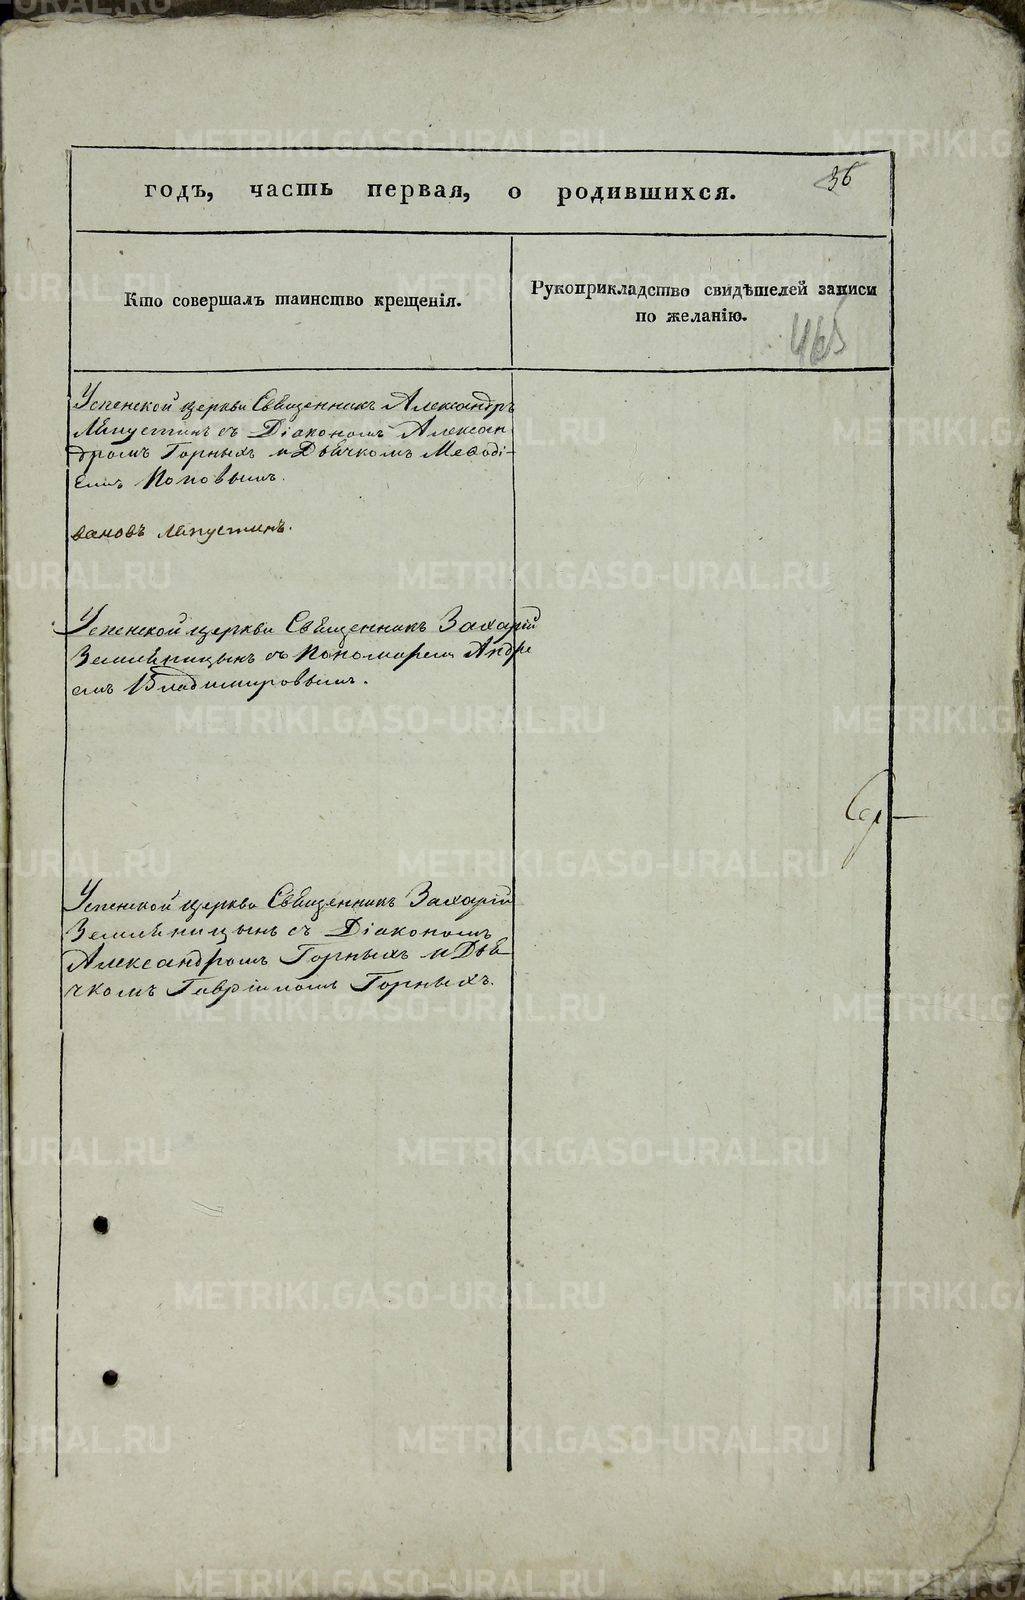 36
годъ, часть первая, о родившихся.
Кто совершалъ таинство крещенія.
Рукоприкладство свидѣтелей записи
по желанію.
465
Успенской церкви Священникъ Александръ
Лѣпустинъ съ Діакономъ Алексан
дромъ Горныхъ и Дьячкомъ Меѳоді-
емъ Поповымъ.
Лѣпустинъ.
Успенской церкви Священникъ Захарій
Землѣницынъ съ Пономаремъ Андре
емъ Владимировымъ.
Успенской церкви Священникъ Захарій
Землѣницынъ съ Діакономъ
Александромъ Горныхъ и Дья
чкомъ Гавріиломъ Горныхъ.
METRIKI.GASO-URAL.RU